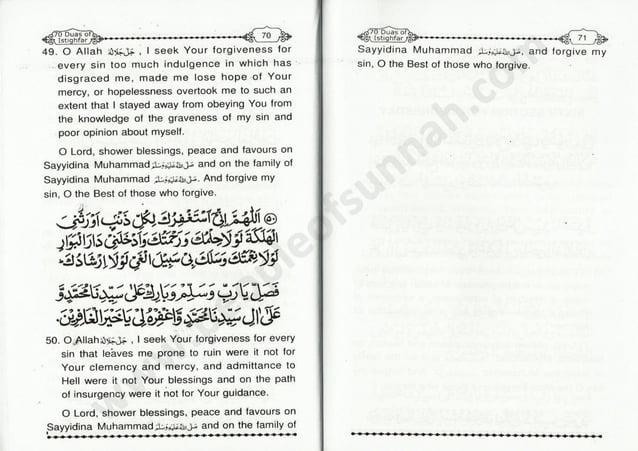 70 Duas of
Istighfar
70
49. O Allah جَلَّ جَلَالُهُ , I seek Your forgiveness for
every sin too much indulgence in which has
disgraced me, made me lose hope of Your
mercy, or hopelessness overtook me to such an
extent that I stayed away from obeying You from
the knowledge of the graveness of my sin and
poor opinion about myself.
O Lord, shower blessings, peace and favours on
Sayyidina Muhammad صَلَّى اللهُ عَلَيْهِ وَسَلَّمَ and on the family of
Sayyidina Muhammad صَلَّى اللهُ عَلَيْهِ وَسَلَّمَ. And forgive my
sin, O the Best of those who forgive.
۵۰ اَللّٰهُمَّ اِنِّىْٓ اَسْتَغْفِرُكَ لِكُلِّ ذَنْۢبٍ اَوْرَثَنِى
الْهَلَكَةَ لَوْلَا حِلْمُكَ وَرَحْمَتُكَ وَاَدْخَلَنِىْ دَارَ الْبَوَارِ
لَوْلَا نِعْمَتُكَ وَسَلَكَ بِىْ سَبِيْلَ الْغَىِّ لَوْلَا اِرْشَادُكَ
فَصَلِّ يَا رَبِّ وَسَلِّمْ وَبَارِكْ عَلٰى سَيِّدِنَا مُحَمَّدٍ وَّ
عَلٰٓى اٰلِ سَيِّدِنَا مُحَمَّدٍ وَّاغْفِرْهُ لِىْ يَا خَيْرَ الْغَافِرِيْنَ.
50. O Allah جَلَّ جَلَالُهُ , I seek Your forgiveness for every
sin that leaves me prone to ruin were it not for
Your clemency and mercy, and admittance to
Hell were it not for Your blessings and on the path
of insurgency were it not for Your guidance.
O Lord, shower blessings, peace and favours on
Sayyidina Muhammad صَلَّى اللهُ عَلَيْهِ وَسَلَّمَ and on the family of
70 Duas of
Istighfar
71
Sayyidina Muhammad صَلَّى اللهُ عَلَيْهِ وَسَلَّمَ, and forgive my
sin, O the Best of those who forgive.